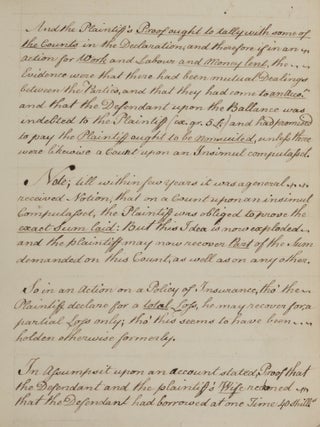 And the Plaintiff's Proof ought to tally with some of
the Counts in the Declaration, and therefore if in an
action for Work and Labour and Money lent, the
Evidence were that there had been mutual Dealings
between the Parties, and that they had come to an Acco.t
and that the Defendant upon the Ballance was
indebted to the Plaintiff (ex. gr. 5 £) and had promised
to pay the Plaintiff ought to be nonsuited, unless there
were likewise a Count upon an Insimul computasset.
Note; till within few Years it was a general
received Notion, that on a Count upon an insimul
Computasset, the Plaintiff was obliged to prove the
exact Sum laid: But this Idea is now exploded
and the plaintiff may now recover Part of the Sum
demanded on this Count, as well as on any other.
So in an Action on a Policy of Insurance, tho' the
Plaintiff declare for a total Loss, he may recover for a
partial Loss only; tho' this seems to have been
holden otherwise formerly.
In Assumpsit upon an account stated, Proof that
the Defendant and the plaintiff's Wife reckoned
that the Defendant had borrowed at one Time 40 Shill.s